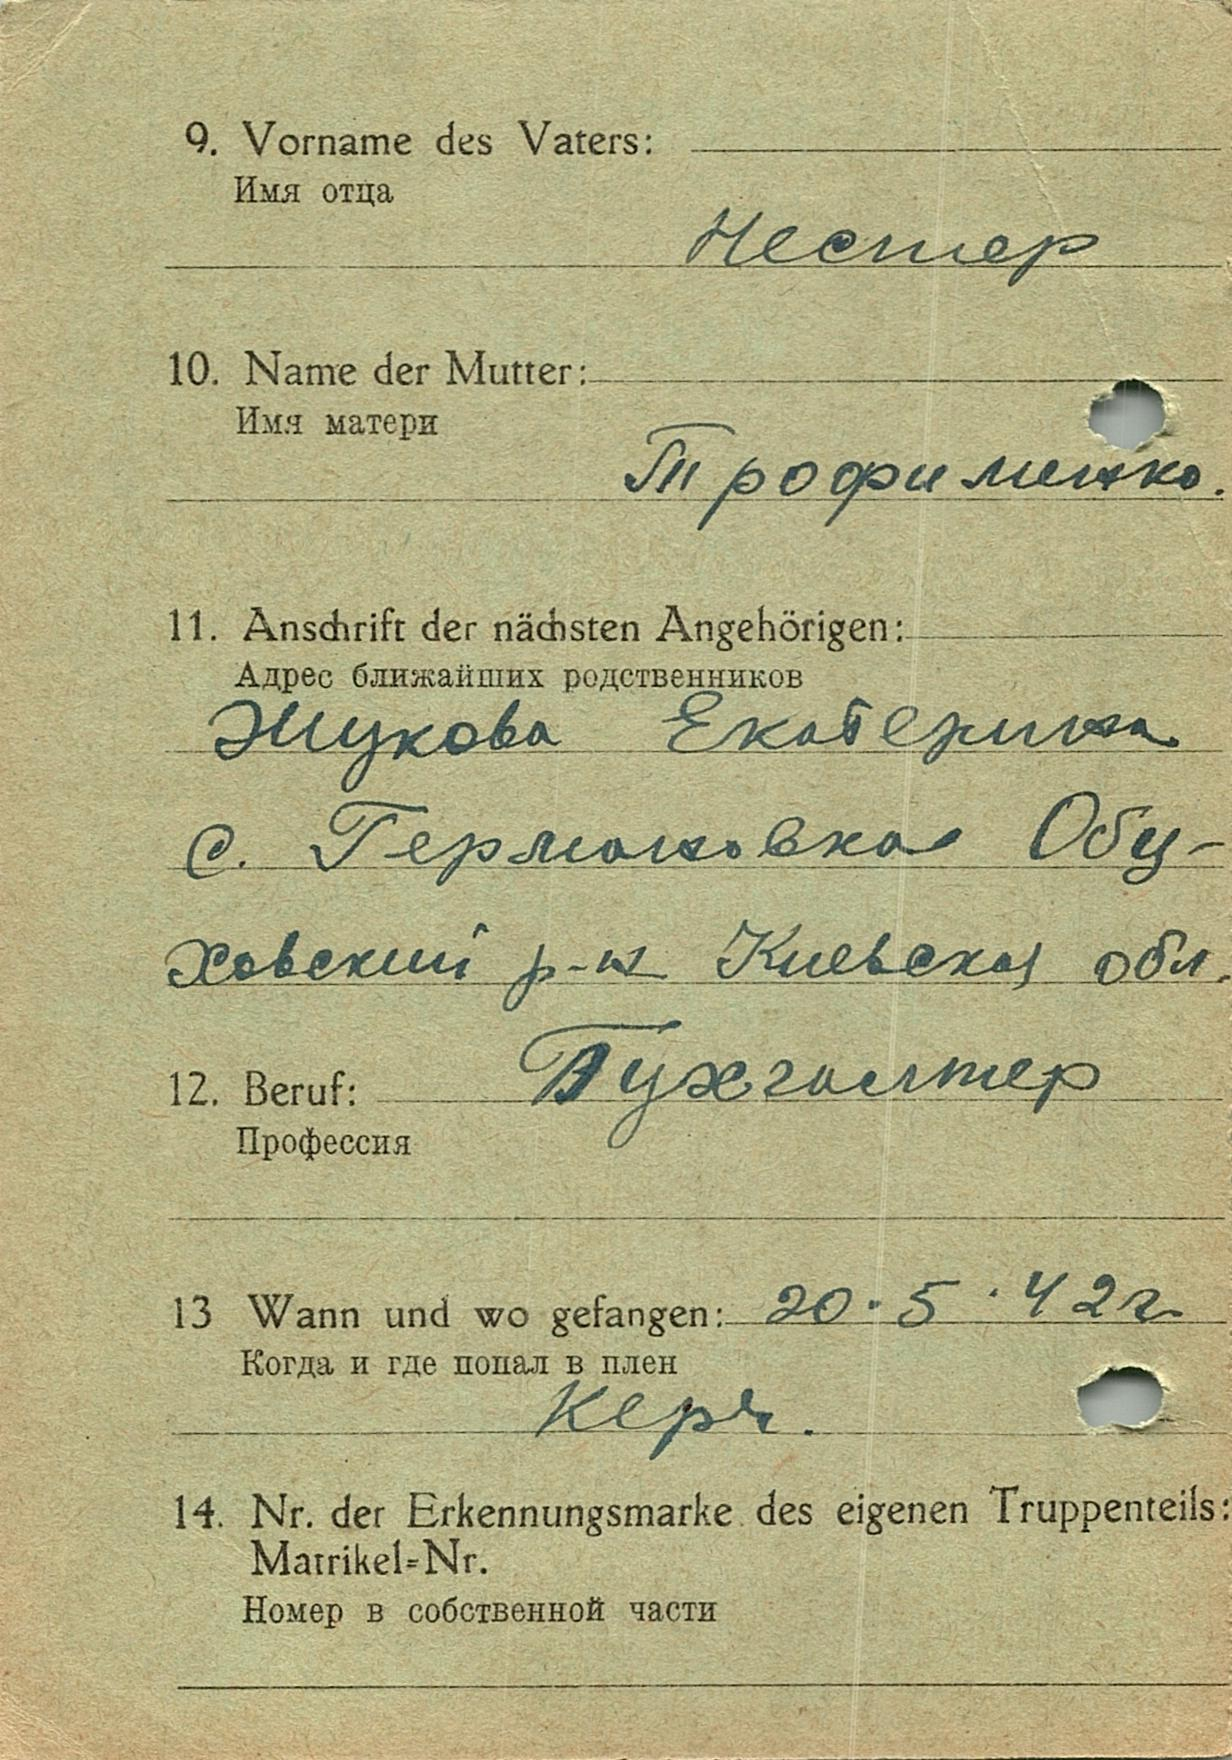 9. Vorname des Vaters:
Имя отца
Нестер
10. Name der Mutter:
Имя матери
Трофименко.
11. Anschrift der nächsten Angehörigen:
Адрес ближайших родственников
Жукова Екатерина
с. Германовка Обу-
ховский р-н Киевская обл.
12. Beruf: Бухгалтер
Профессия
13 Wann und wo gefangen: 20.5.42г
Когда и где попал в плен
Керч.
14. Nr. der Erkennungsmarke des eigenen Truppenteils:
Matrikel=Nr.
Номер в собственной части